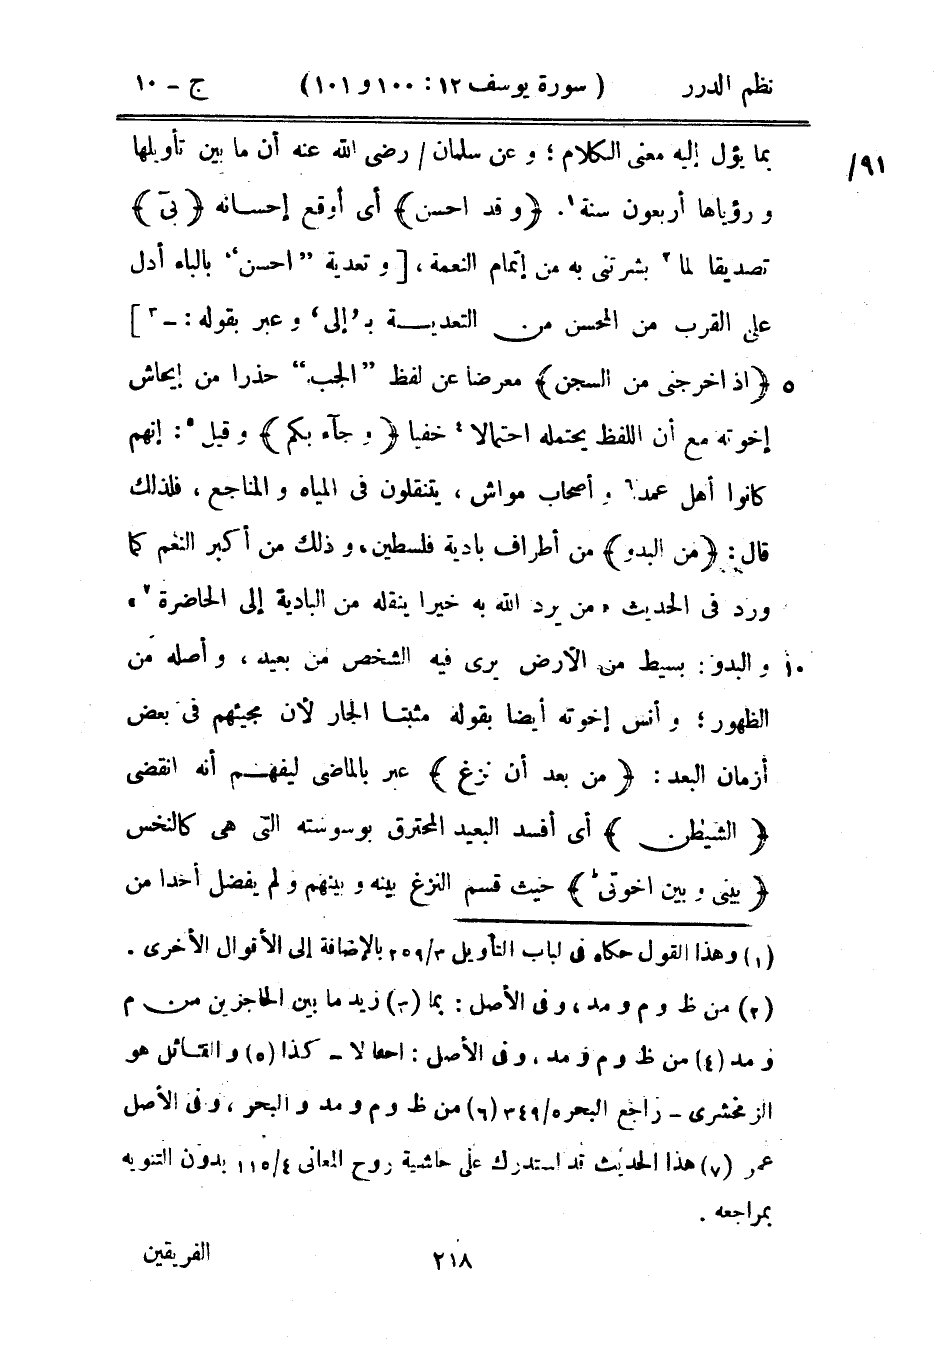 نظم الدرر ( سورة يوسف ١٢ : ١٠٠ و ١٠١ ) ج ـ ١٠
بما يؤل إليه معنى الكلام ؛ و عن سلمان / رضى الله عنه أن ما بين تأويلها /٩١
و رؤياها أربعون سنة ١. ﴿ و قد احسن ﴾ أى أوقع إحسانه ﴿ بىٓ ﴾
تصديقا لما ٢ بشرتنى به من إتمام النعمة ، [ و تعدية ”احسن“ بالباء أدل
على القرب من المحسن من التعدية بـ ’إلى‘ و عبر بقوله : ـ ٣ ]
٥ ﴿ اذ اخرجنى من السجن ﴾ معرضا عن لفظ ”الجب“ حذرا من إيحاش
إخوته مع أن اللفظ يحتمله احتمالا ٤ خفيا ﴿ و جآء بكم ﴾ و قيل ٥ : إنهم
كانوا أهل عمد ٦ و أصحاب مواش ، يتنقلون فى المياه و المناجع ، فلذلك
قال : ﴿ من البدو ﴾ من أطراف بادية فلسطين ، و ذلك من أكبر النعم كما
ورد فى الحديث « من يرد الله به خيرا ينقله من البادية إلى الحاضرة ٧ »
١٠ و البدو : بسيط من الأرض يرى فيه الشخص من بعيد ، و أصله من
الظهور ؛ و أنس إخوته أيضا بقوله مثبتا الجار لأن مجيئهم فى بعض
أزمان البعد : ﴿ من بعد أن نزغ ﴾ عبر بالماضى ليفهم أنه انقضى
﴿ الشيطٰن ﴾ أى أفسد البعيد المحترق بوسوسته التى هى كالنخس
﴿ بينى و بين اخوتى ۭ ﴾ حيث قسم النزغ بينه و بينهم و لم يفضل أحدا من
(١) وهذا القول حكاه فى لباب التأويل ٣/٢٥٩ بالإضافة إلى الأقوال الأخرى .
(٢) من ظ و م و مد ، و فى الأصل : بما (٣) زيد ما بين الحاجزين من م
و مد (٤) من ظ و م و مد ، و فى الأصل : احعالا ـ كذا (٥) و القائل هو
الزمخشرى ـ راجع البحر ٥/٣٤٩ (٦) من ظ و م و مد و البحر ، و فى الأصل
عمر (٧) هذا الحديث قد استدرك على حاشية روح المعانى ٤/١١٥ بدون التنويه
بمراجعه .
٢١٨ الفريقين